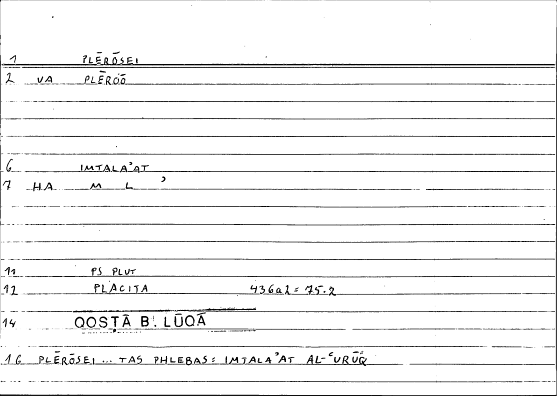 1 PLĒRŌSEI
2 VA PLĒROŌ
6 IMTALAʾAT
7 HA M L ʾ
11 PS PLUT
12 PLACITA 436a2 = 75.2
14 QOSṬĀ B. LŪQĀ
16 PLĒRŌSEI ... TAS PHLEBAS = IMTALAʾAT AL-ʿURŪQ